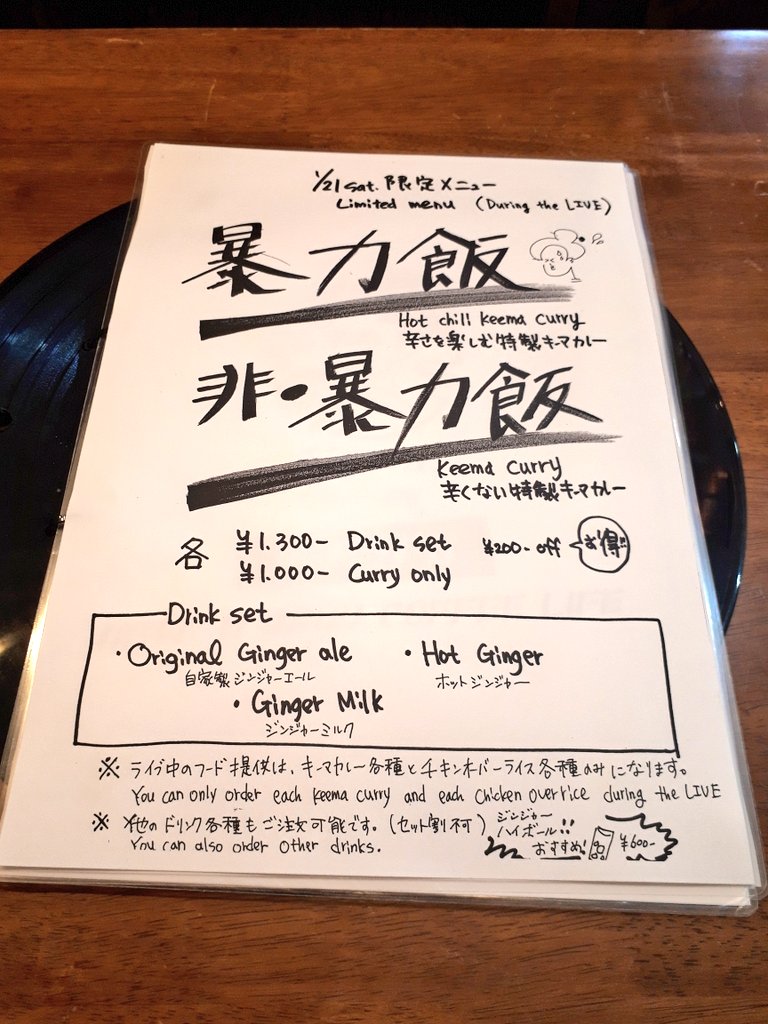 1/21 sat. 限定メニュー
Limited menu (During the LIVE)
暴力飯
Hot chili Keema Curry
辛さを楽しむ特製キーマカレー
非・暴力飯
Keema Curry
辛くない特製キーマカレー
各 ¥1.300- Drink set ¥200-off お得!!
¥1.000- Curry only
Drink set
・Original Ginger ale ・Hot Ginger
自家製ジンジャーエール ホットジンジャー
・Ginger Milk
ジンジャーミルク
※ ライブ中のフード提供は、キーマカレー各種とチキンオーバーライス各種のみになります。
You can only order each keema curry and each Chicken over rice during the LIVE
※ 他のドリンク各種もご注文可能です。(セット割不可) ジンジャーハイボール!!
You can also order other drinks. おすすめ! ¥600-